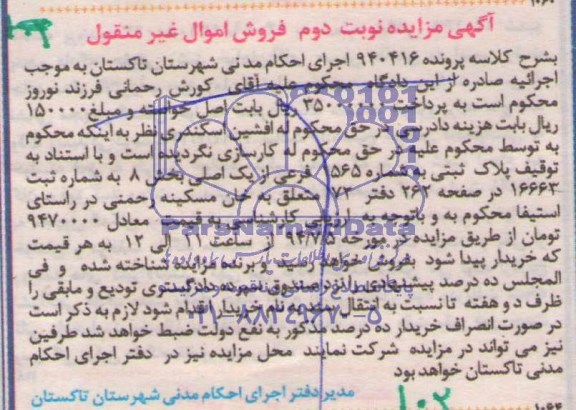 آگهی مزایده نوبت دوم فروش اموال غیر منقول
بشرح کلاسه پرونده ۹۴۰۴۱۶ اجرای احکام مدنی شهرستان تاکستان به موجب
اجرائیه صادره از این دادگاه محکوم علیه آقای کورش رحمانی فرزند نوروز
محکوم است به پرداخت ریال بابت اصل خواسته و مبلغ ۱۵۰۰۰۰۰
ریال بابت هزینه دادرسی در حق محکوم له افشین اسکندری نظر به اینکه محکوم
به توسط محکوم علیه در حق محکوم له کارسازی نگردیده است و با استناد به
توقیف پلاک ثبتی به شماره ۵۶۵ فرعی از یک اصلی بخش ۸ به شماره ثبت
۱۶۶۶۳ در صفحه ۲۶۲ دفتر ۷۲ متعلق به خان مسکینه رحمنی در راستای
استیفا محکوم به و باتوجه به ارزیابی کارشناسی به قیمت معادل ۹۴۷۰۰۰۰
تومان از طریق مزایده در مورخه ۹۴/۷/۵ از ساعت ۱۱ الی ۱۲ به هر قیمت
که خریدار پیدا شود بفروش خواهد رسید و برنده مزایده شناخته شده و فی
المجلس ده درصد پیشنهادی را نزد صندوق سپرده دادگستری تودیع و مابقی را
ظرف دو هفته تا نسبت به انتقال سند به نام خریدار اقدام شود لازم به ذکر است
در صورت انصراف خریدار ده درصد مذکور به نفع دولت ضبط خواهد شد طرفین
نیز می تواند در مزایده شرکت نمایند محل مزایده نیز در دفتر اجرای احکام
مدنی تاکستان خواهد بود
مدیر دفتر اجرای احکام مدنی شهرستان تاکستان
ParsNamadData
۰۲۱-۸۸۳۴۹۶۷۰-۵
۱۰۲